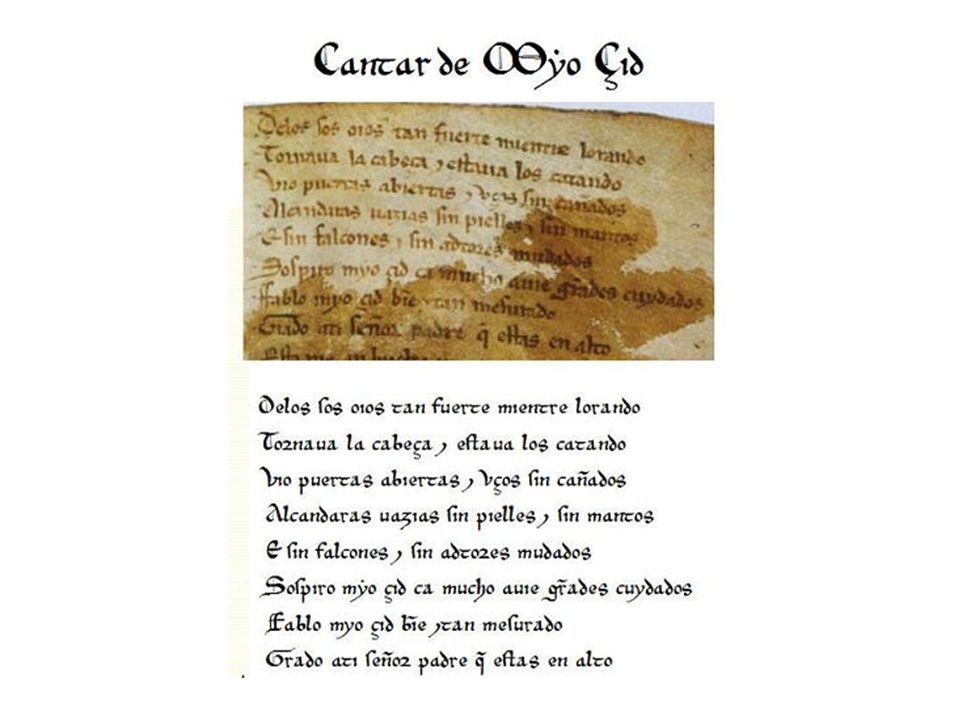 Cantar de Myo Çid
Delos sos oios tan fuerte mientre lorando
Tornaua la cabeça ⁊ estaua los catando
Vio puertas abiertas ⁊ vços sin cañados
Alcandaras uazias sin pielles ⁊ sin mantos
E sin falcones ⁊ sin adtores mudados
Sospiro myo çid ca mucho auie gr̃ades cuydados
Ffablo myo çid bīe ⁊ tan mesurado
Grado ati señor padre q̃ estas en alto
Delos sos oios tan fuerte mientre lorando
Tornaua la cabeça ⁊ estaua los catando
Vio puertas abiertas ⁊ vços sin cañados
Alcandaras uazias sin pielles ⁊ sin mantos
E sin falcones ⁊ sin adtores mudados
Sospiro mẏo çid ca mucho auie gr̃ades cuydados
Fablo myo çid bīe ⁊ tan mesurado
Grado ati señor padre q̃ estas en alto